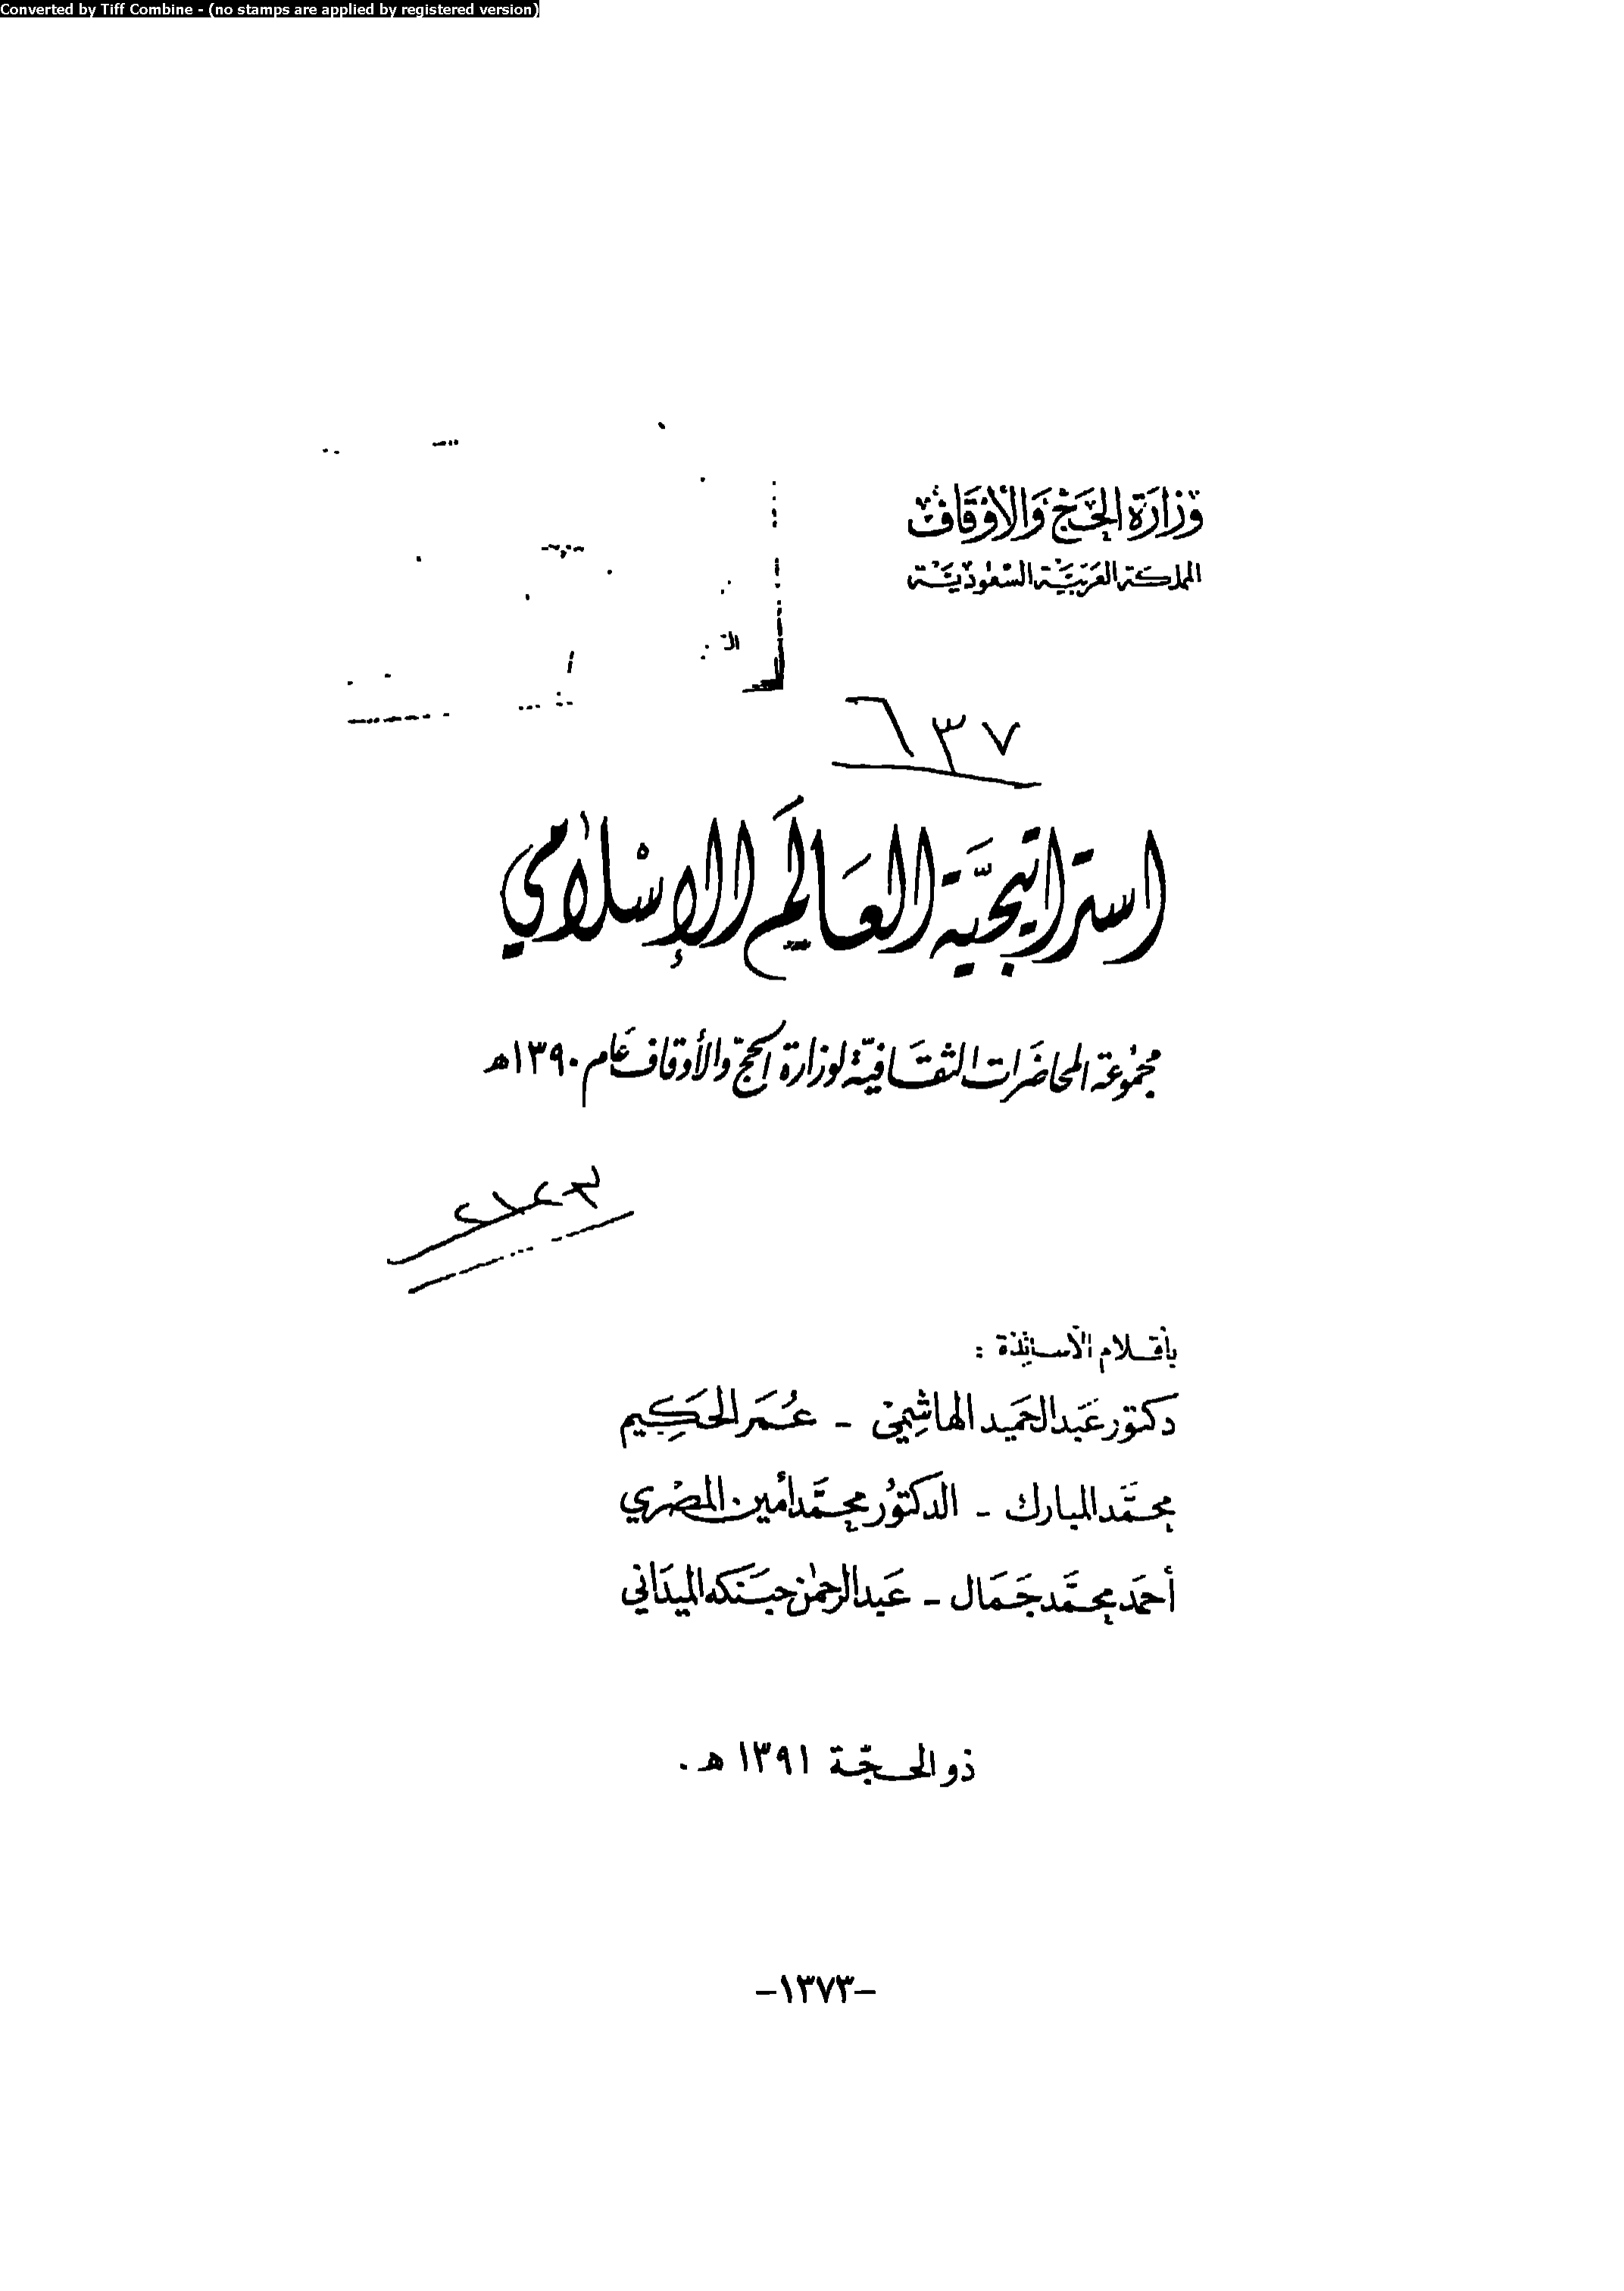 Converted by Tiff Combine - (no stamps are applied by registered version)
وَزَارَة الحَجّ وَالأوقَاف
المملكة العَرَبيَّة السّعُوديَّة
٦٣٧
استراتيجيَّة العَالَم الإسْلامي
مجمُوعة المحاضَرات الثقَافيّة لوزارة الحجّ والأوقاف عَام ١٣٩٠ه
بأقلام الأساتذة :
دكتور عَبد الحَميد الهاشِمي - عُمَر الحَكِيم
محمَّد المبارك - الدكتوُر محمَّد أمين المصْري
أحمَد محمَّد جَمَال - عَبد الرحمٰن حبَنكه الميدَاني
ذو الحجّة ١٣٩١ ه .
-١٣٧٣-